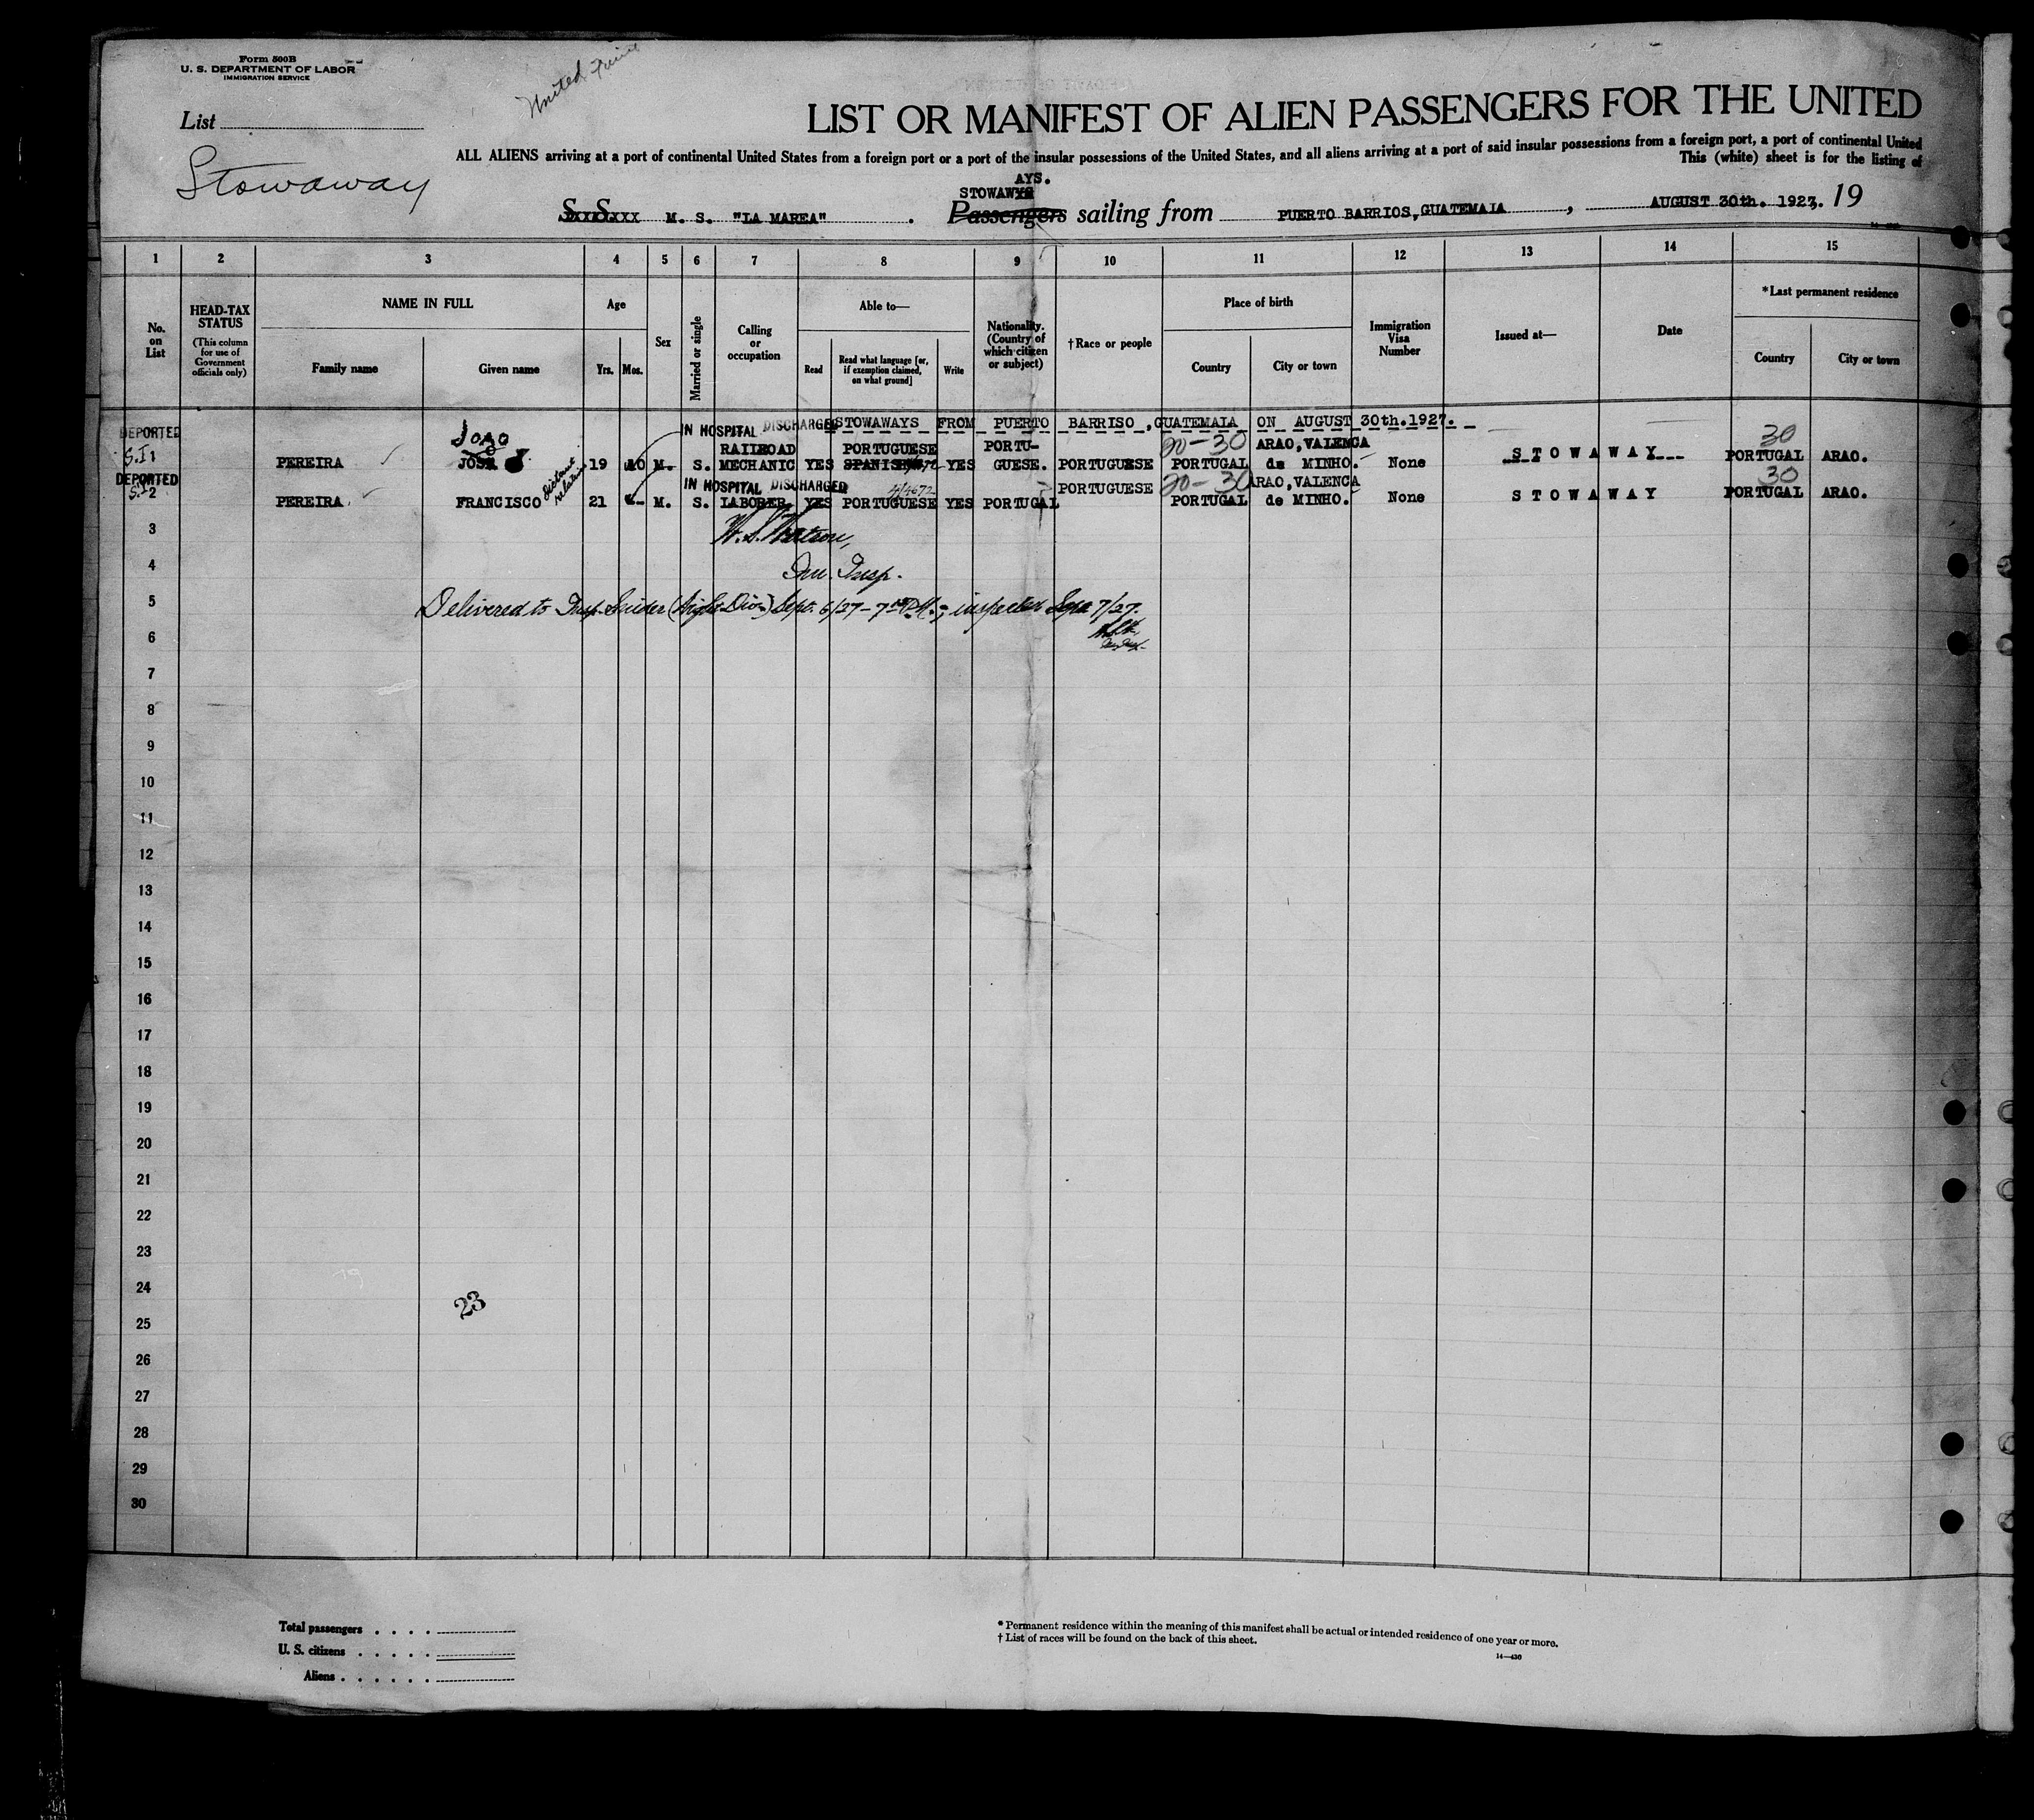 Form 500B
U. S. DEPARTMENT OF LABOR
IMMIGRATION SERVICE
United Fruit
List
Stowaway
LIST OR MANIFEST OF ALIEN PASSENGERS FOR THE UNITED
ALL ALIENS arriving at a port of continental United States from a foreign port or a port of the insular possessions of the United States, and all aliens arriving at a port of said insular possessions from a foreign port, a port of continental United
This (white) sheet is for the listing of
AYS.
STOWAWYS
S. S. M. S. "LA MAREA" . Passengers sailing from PUERTO BARRIOS, GUATEMALA , AUGUST 30th. 1927. 19
1 2 3 4 5 6 7 8 9 10 11 12 13 14 15
No. on List
HEAD-TAX STATUS
(This column for use of Government officials only)
NAME IN FULL
Family name Given name
Age
Yrs. Mos.
Sex
Married or single
Calling or occupation
Able to—
Read
Read what language [or, if exemption claimed, on what ground]
Write
Nationality. (Country of which citizen or subject)
†Race or people
Place of birth
Country City or town
Immigration Visa Number
Issued at—
Date
*Last permanent residence
Country City or town
IN HOSPITAL DISCHARGED STOWAWAYS FROM PUERTO BARRISO, GUATEMALA ON AUGUST 30th.1927.
DEPORTED
JOAO RAILROAD PORTUGUESE PORTU- 20-30 ARAO, VALENCA 30
S.I 1 PEREIRA JOSE 19 10 M. S. MECHANIC YES SPANISH YES GUESE. PORTUGUESE PORTUGAL de MINHO. None STOWAWAY PORTUGAL ARAO.
distant relative
DEPORTED IN HOSPITAL DISCHARGED PORTUGUESE 20-30 ARAO, VALENCA 30
S.I 2 PEREIRA FRANCISCO 21 -- M. S. LABORER YES PORTUGUESE YES PORTUGAL PORTUGAL de MINHO. None STOWAWAY PORTUGAL ARAO.
3
4 Imm. Insp.
5 Delivered to Insp. Sept. 6/27 - inspected Sept 7/27.
6
7
8
9
10
11
12
13
14
15
16
17
18
19
20
21
22
23
24
23
25
26
27
28
29
30
Total passengers . . . .
U. S. citizens . . . . .
Aliens . . . . . .
* Permanent residence within the meaning of this manifest shall be actual or intended residence of one year or more.
† List of races will be found on the back of this sheet.
14—430